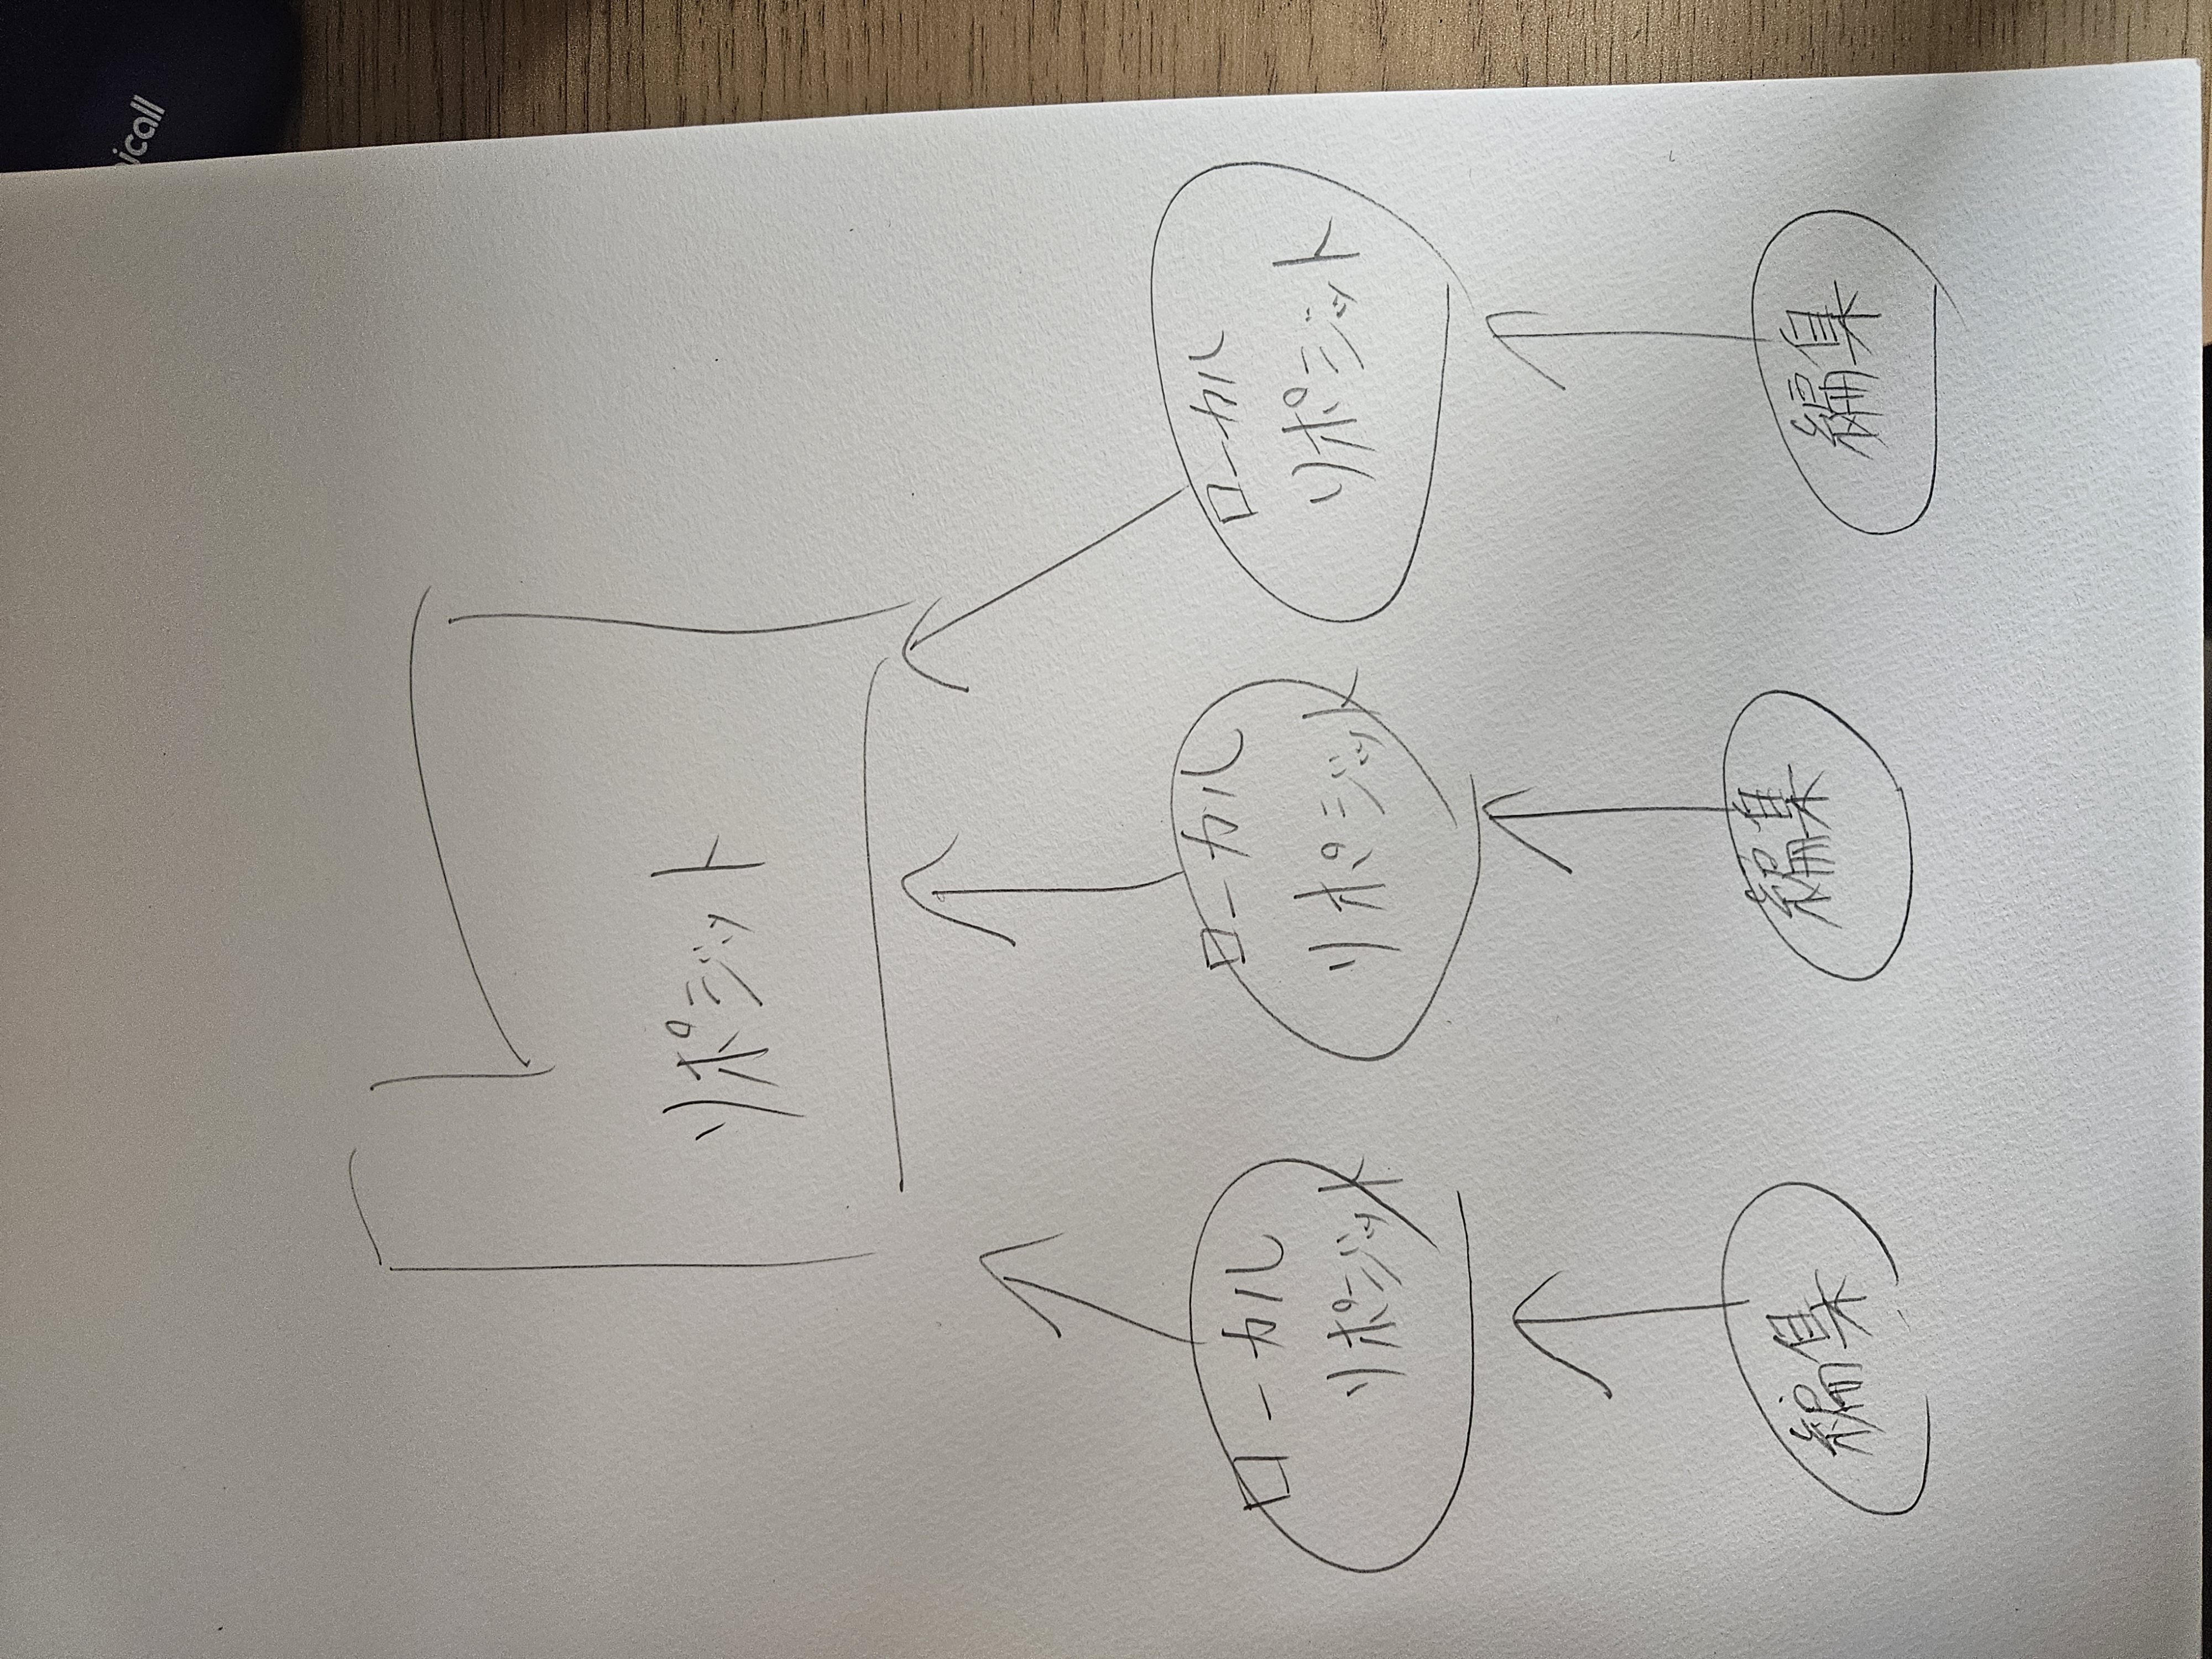 icall
リポジット
ローカル
リポジット
ローカル
リポジット
ローカル
リポジット
編集
編集
編集